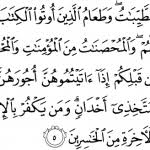 لطَّيِّبَـٰتُ ۖ وَطَعَامُ ٱلَّذِينَ أُوتُوا۟ ٱلْكِتَـٰبَ
لَّهُمْ ۖ وَٱلْمُحْصَنَـٰتُ مِنَ ٱلْمُؤْمِنَـٰتِ وَٱلْمُ
مِن قَبْلِكُمْ إِذَآ ءَاتَيْتُمُوهُنَّ أُجُورَهُنَّ
مُتَّخِذِىٓ أَخْدَانٍ ۗ وَمَن يَكْفُرْ بِٱلْإِ
ٱلْـَٔاخِرَةِ مِنَ ٱلْخَـٰسِرِينَ ٥